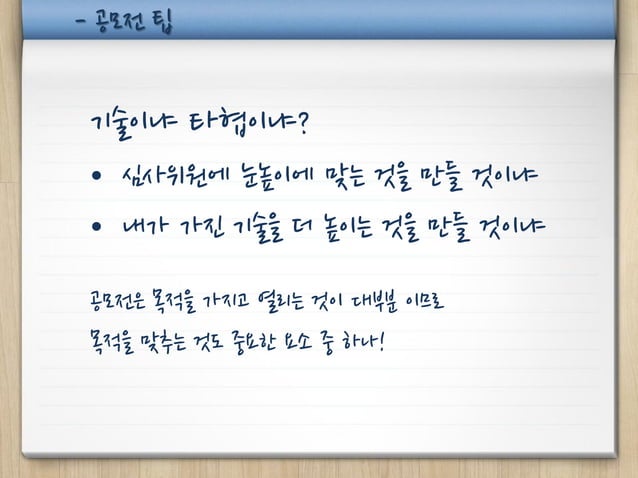 - 공모전 팁
기술이냐 타협이냐?
• 심사위원에 눈높이에 맞는 것을 만들 것이냐
• 내가 가진 기술을 더 높이는 것을 만들 것이냐
공모전은 목적을 가지고 열리는 것이 대부분 이므로
목적을 맞추는 것도 중요한 요소 중 하나!